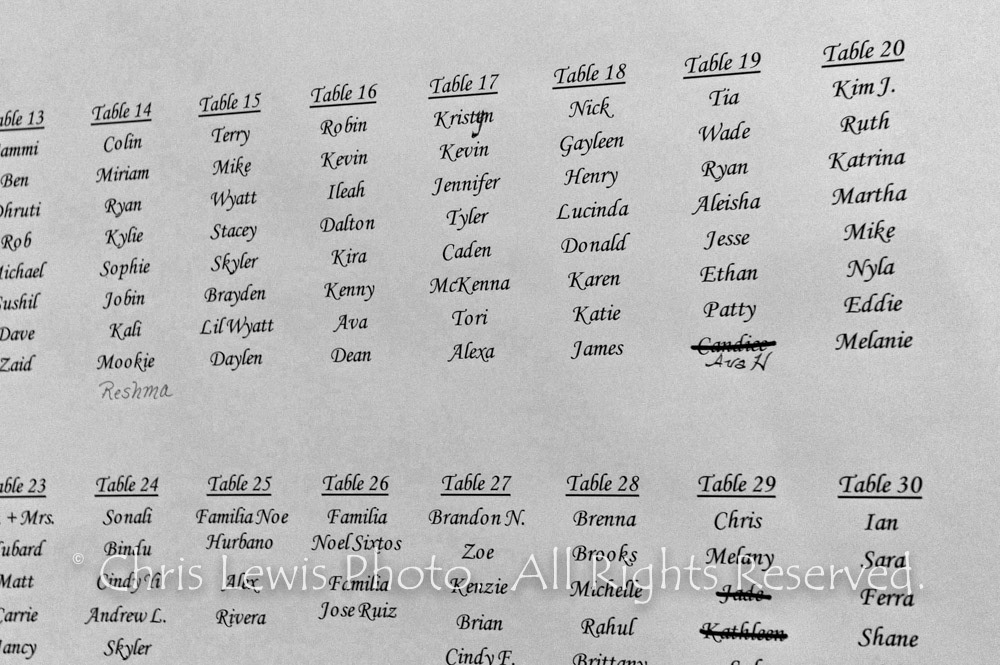 Table 14
Colin
Miriam
Ryan
Kylie
Sophie
Jobin
Kali
Mookie
Reshma
Table 15
Terry
Mike
Wyatt
Stacey
Skyler
Brayden
Lil Wyatt
Daylen
Table 16
Robin
Kevin
Ileah
Dalton
Kira
Kenny
Ava
Dean
Table 17
Kristyn
Kevin
Jennifer
Tyler
Caden
McKenna
Tori
Alexa
Table 18
Nick
Gayleen
Henry
Lucinda
Donald
Karen
Katie
James
Table 19
Tia
Wade
Ryan
Aleisha
Jesse
Ethan
Patty
Candice
Ava H
Table 20
Kim J.
Ruth
Katrina
Martha
Mike
Nyla
Eddie
Melanie
able 13
ammi
Ben
Dhruti
Rob
Michael
Sushil
Dave
Zaid
able 23
+ Mrs.
ubard
Matt
Carrie
ancy
Table 24
Sonali
Bindu
Cindy Yi
Andrew L.
Skyler
Table 25
Familia Noe
Hurbano
Alex
Rivera
Table 26
Familia
Noel Sixtos
Familia
Jose Ruiz
Table 27
Brandon N.
Zoe
Kenzie
Brian
Cindy F.
Table 28
Brenna
Brooks
Michelle
Rahul
Brittany
Table 29
Chris
Melany
Jade
Kathleen
Table 30
Ian
Sara
Ferra
Shane
© Chris Lewis Photo. All Rights Reserved.